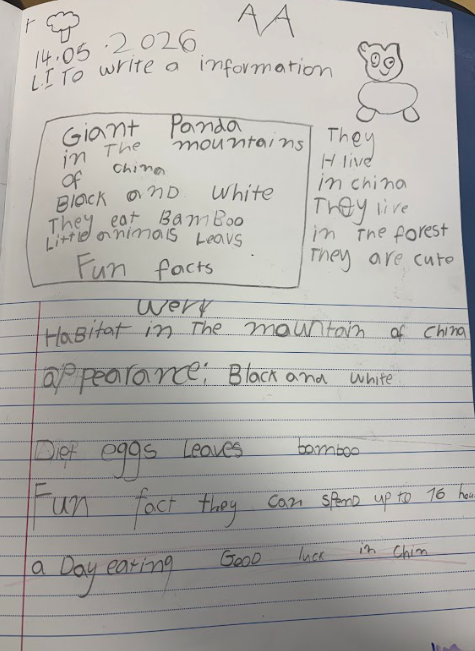 AA
14.05.2026
L.I To write a information
Giant Panda
in The mountains
of China
Black and White
They eat BamBoo
Little animals Leavs
Fun facts
They
H live
in china
They live
in The forest
They are cute
Werk
HaBitat in The mountain of China
appearance: Black and white
Diet eggs Leaves bamboo
Fun fact they can spend up to 16 hou
a Day eating Good luck in Chin